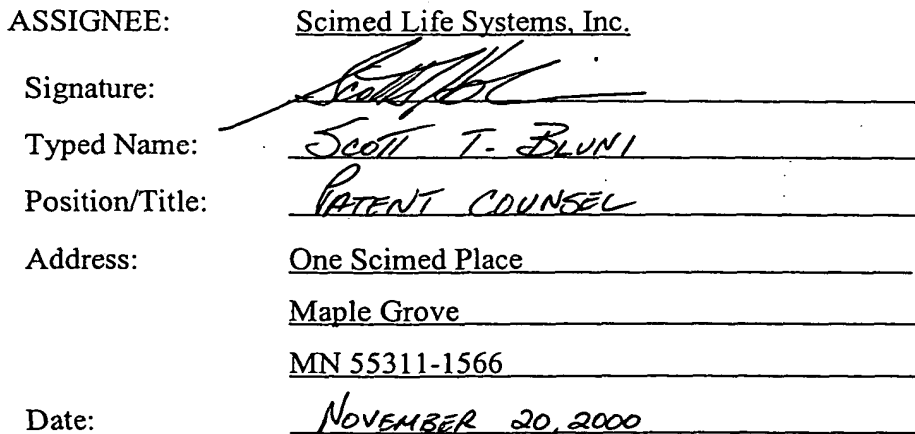 ASSIGNEE: Scimed Life Systems, Inc.
Signature:
Typed Name: SCOTT T. BLUNI
Position/Title: PATENT COUNSEL
Address: One Scimed Place
Maple Grove
MN 55311-1566
Date: NOVEMBER 20, 2000